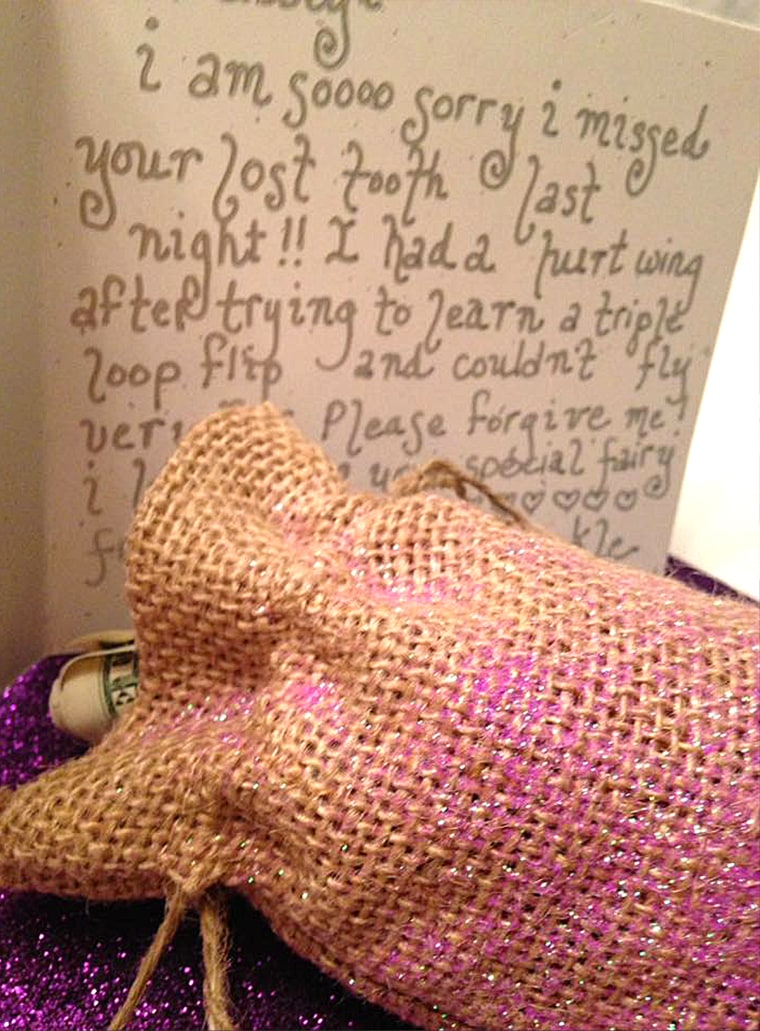 i am soooo sorry i missed
your lost tooth last
night!! I had a hurt wing
after trying to learn a triple
loop flip and couldn't fly
Please forgive me!
i special fairy